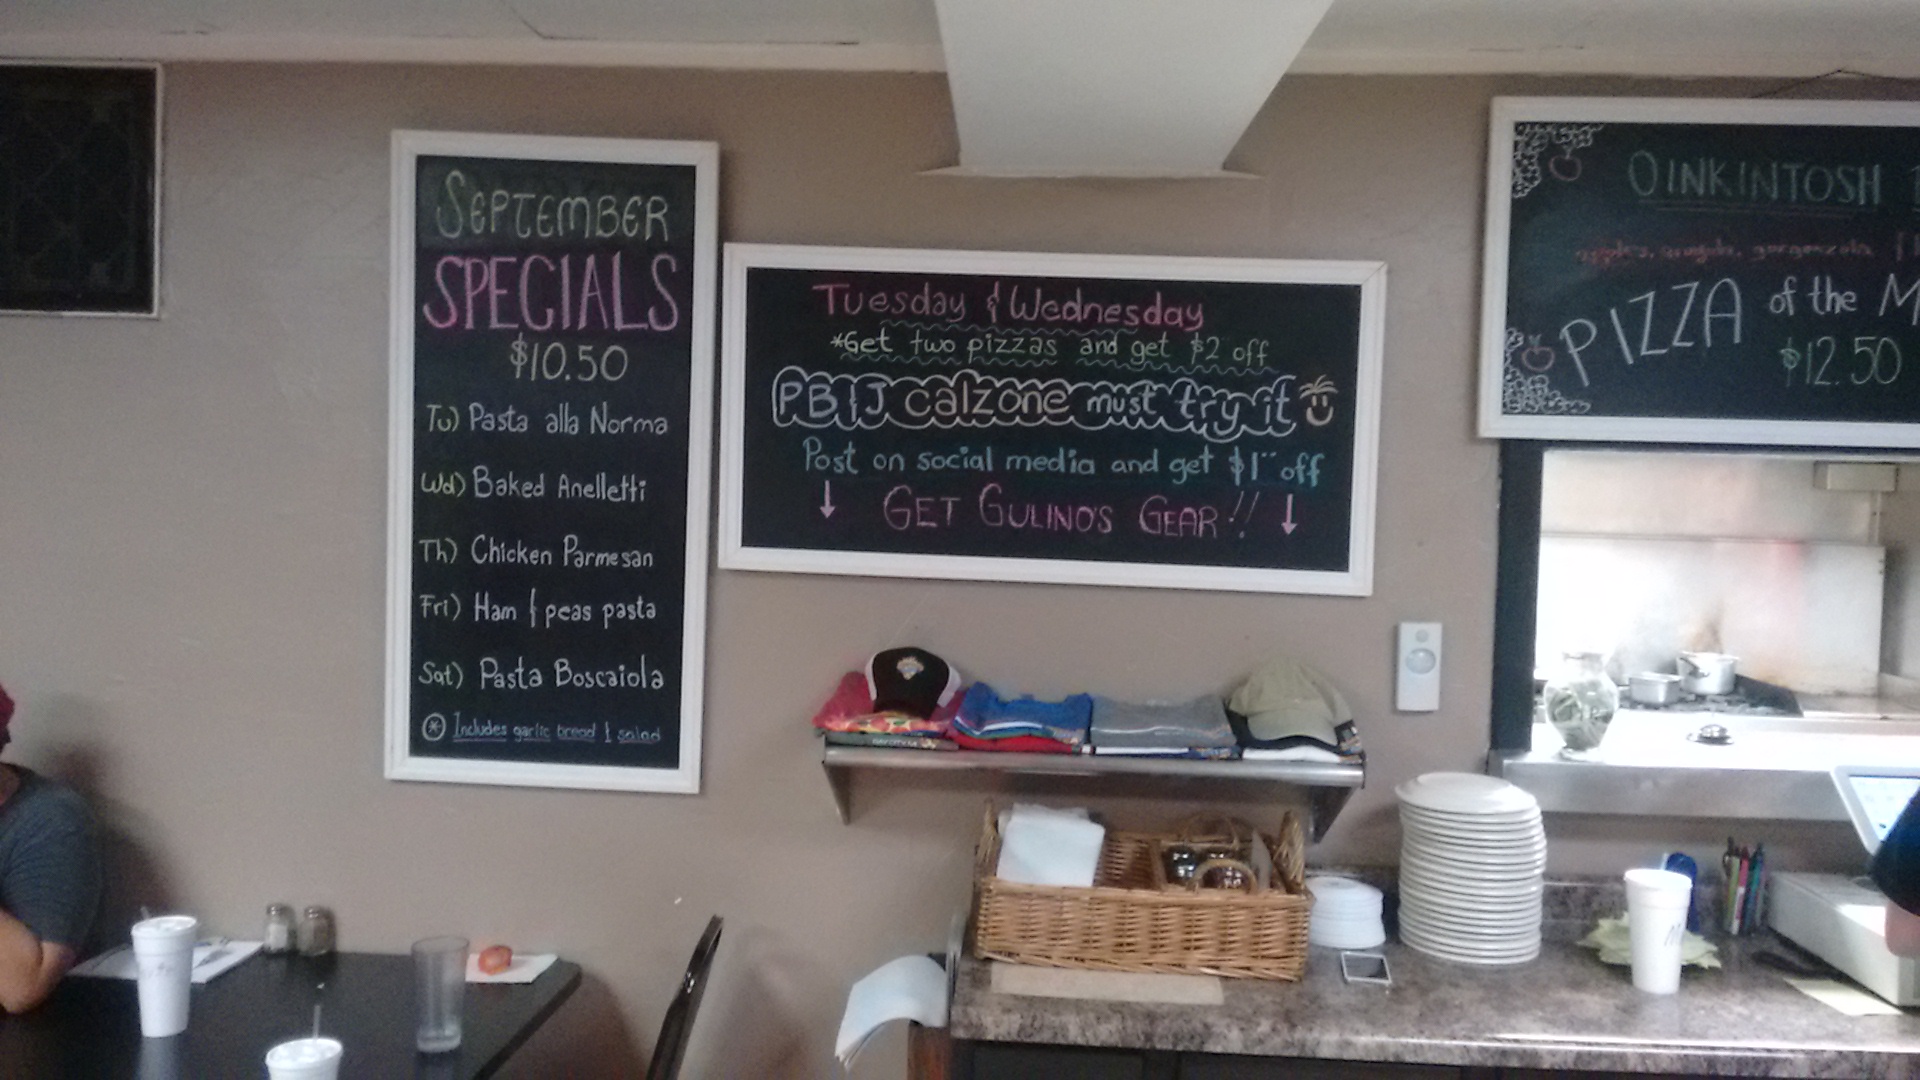 SEPTEMBER
SPECIALS
$10.50
Tu) Pasta alla Norma
Wd) Baked Anelletti
Th) Chicken Parmesan
Fri) Ham & peas pasta
Sat) Pasta Boscaiola
* Includes garlic bread & salad
Tuesday & Wednesday
*Get two pizzas and get $2 off
PB&J calzone must try it
Post on social media and get $1 off
↓ GET GULINO'S GEAR!! ↓
OINKINTOSH
apples, arugula, gorgonzola
PIZZA of the M
$12.50